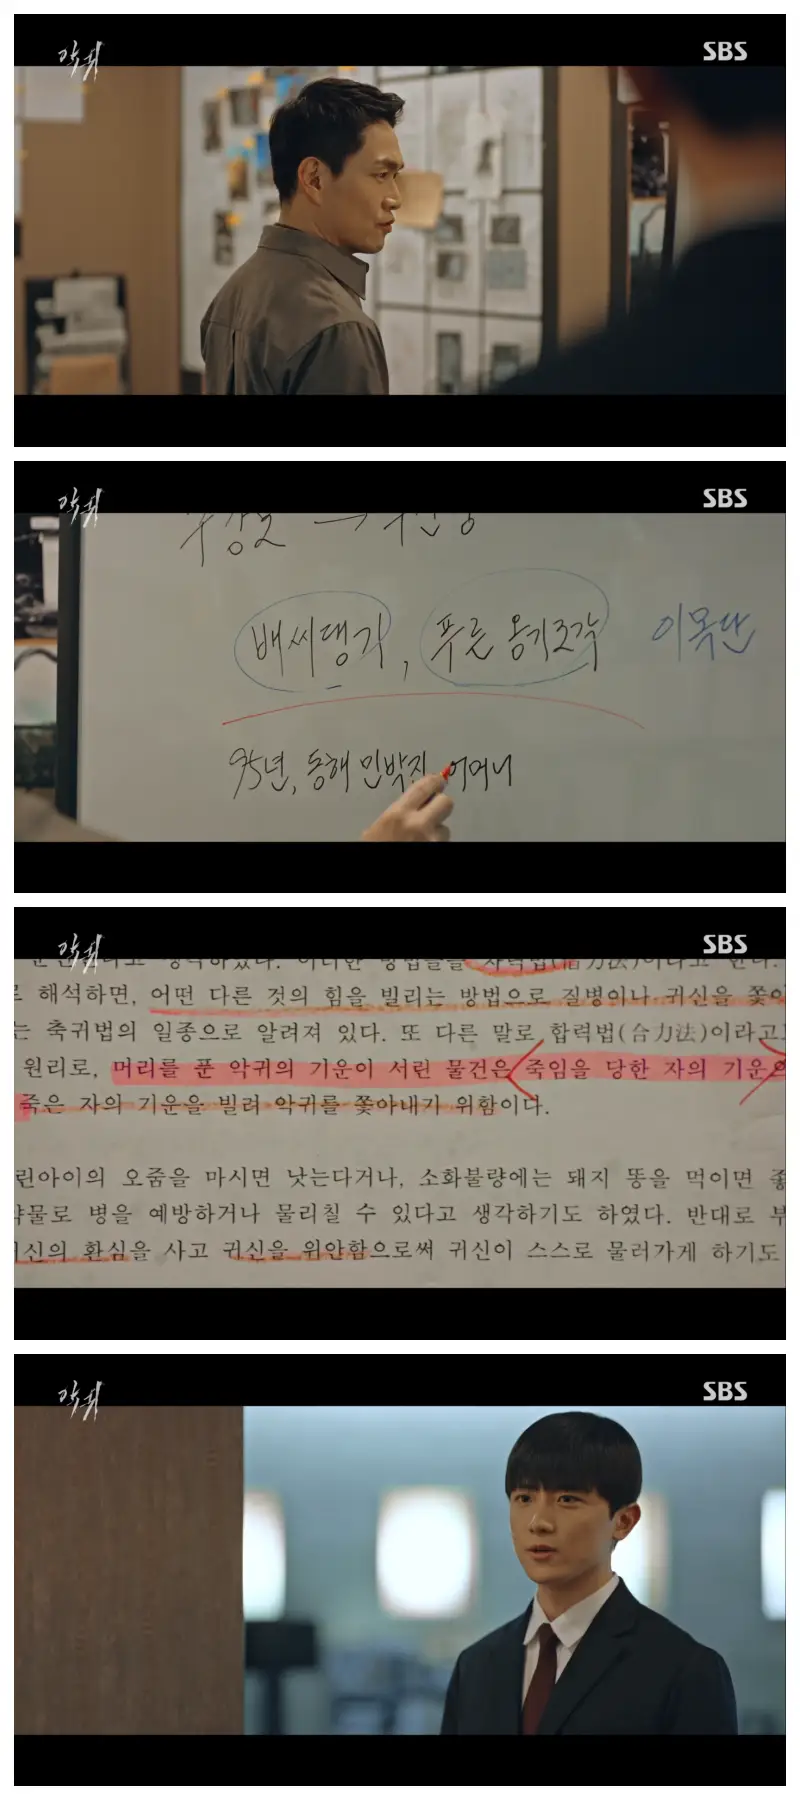 악귀
SBS
악귀
SBS
배씨댕기, 푸른 옹기조각 이목단
95년, 동해 민박집 어머니
악귀
SBS
해석하면, 어떤 다른 것의 힘을 빌리는 방법으로 질병이나 귀신을 쫓아
는 축귀법의 일종으로 알려져 있다. 또 다른 말로 합력법(合力法)이라고
원리로, 머리를 푼 악귀의 기운이 서린 물건은 죽임을 당한 자의 기운으
죽은 자의 기운을 빌려 악귀를 쫓아내기 위함이다.
린아이의 오줌을 마시면 낫는다거나, 소화불량에는 돼지 똥을 먹이면 좋
약물로 병을 예방하거나 물리칠 수 있다고 생각하기도 하였다. 반대로 부
귀신의 환심을 사고 귀신을 위안함으로써 귀신이 스스로 물러가게 하기도
악귀
SBS